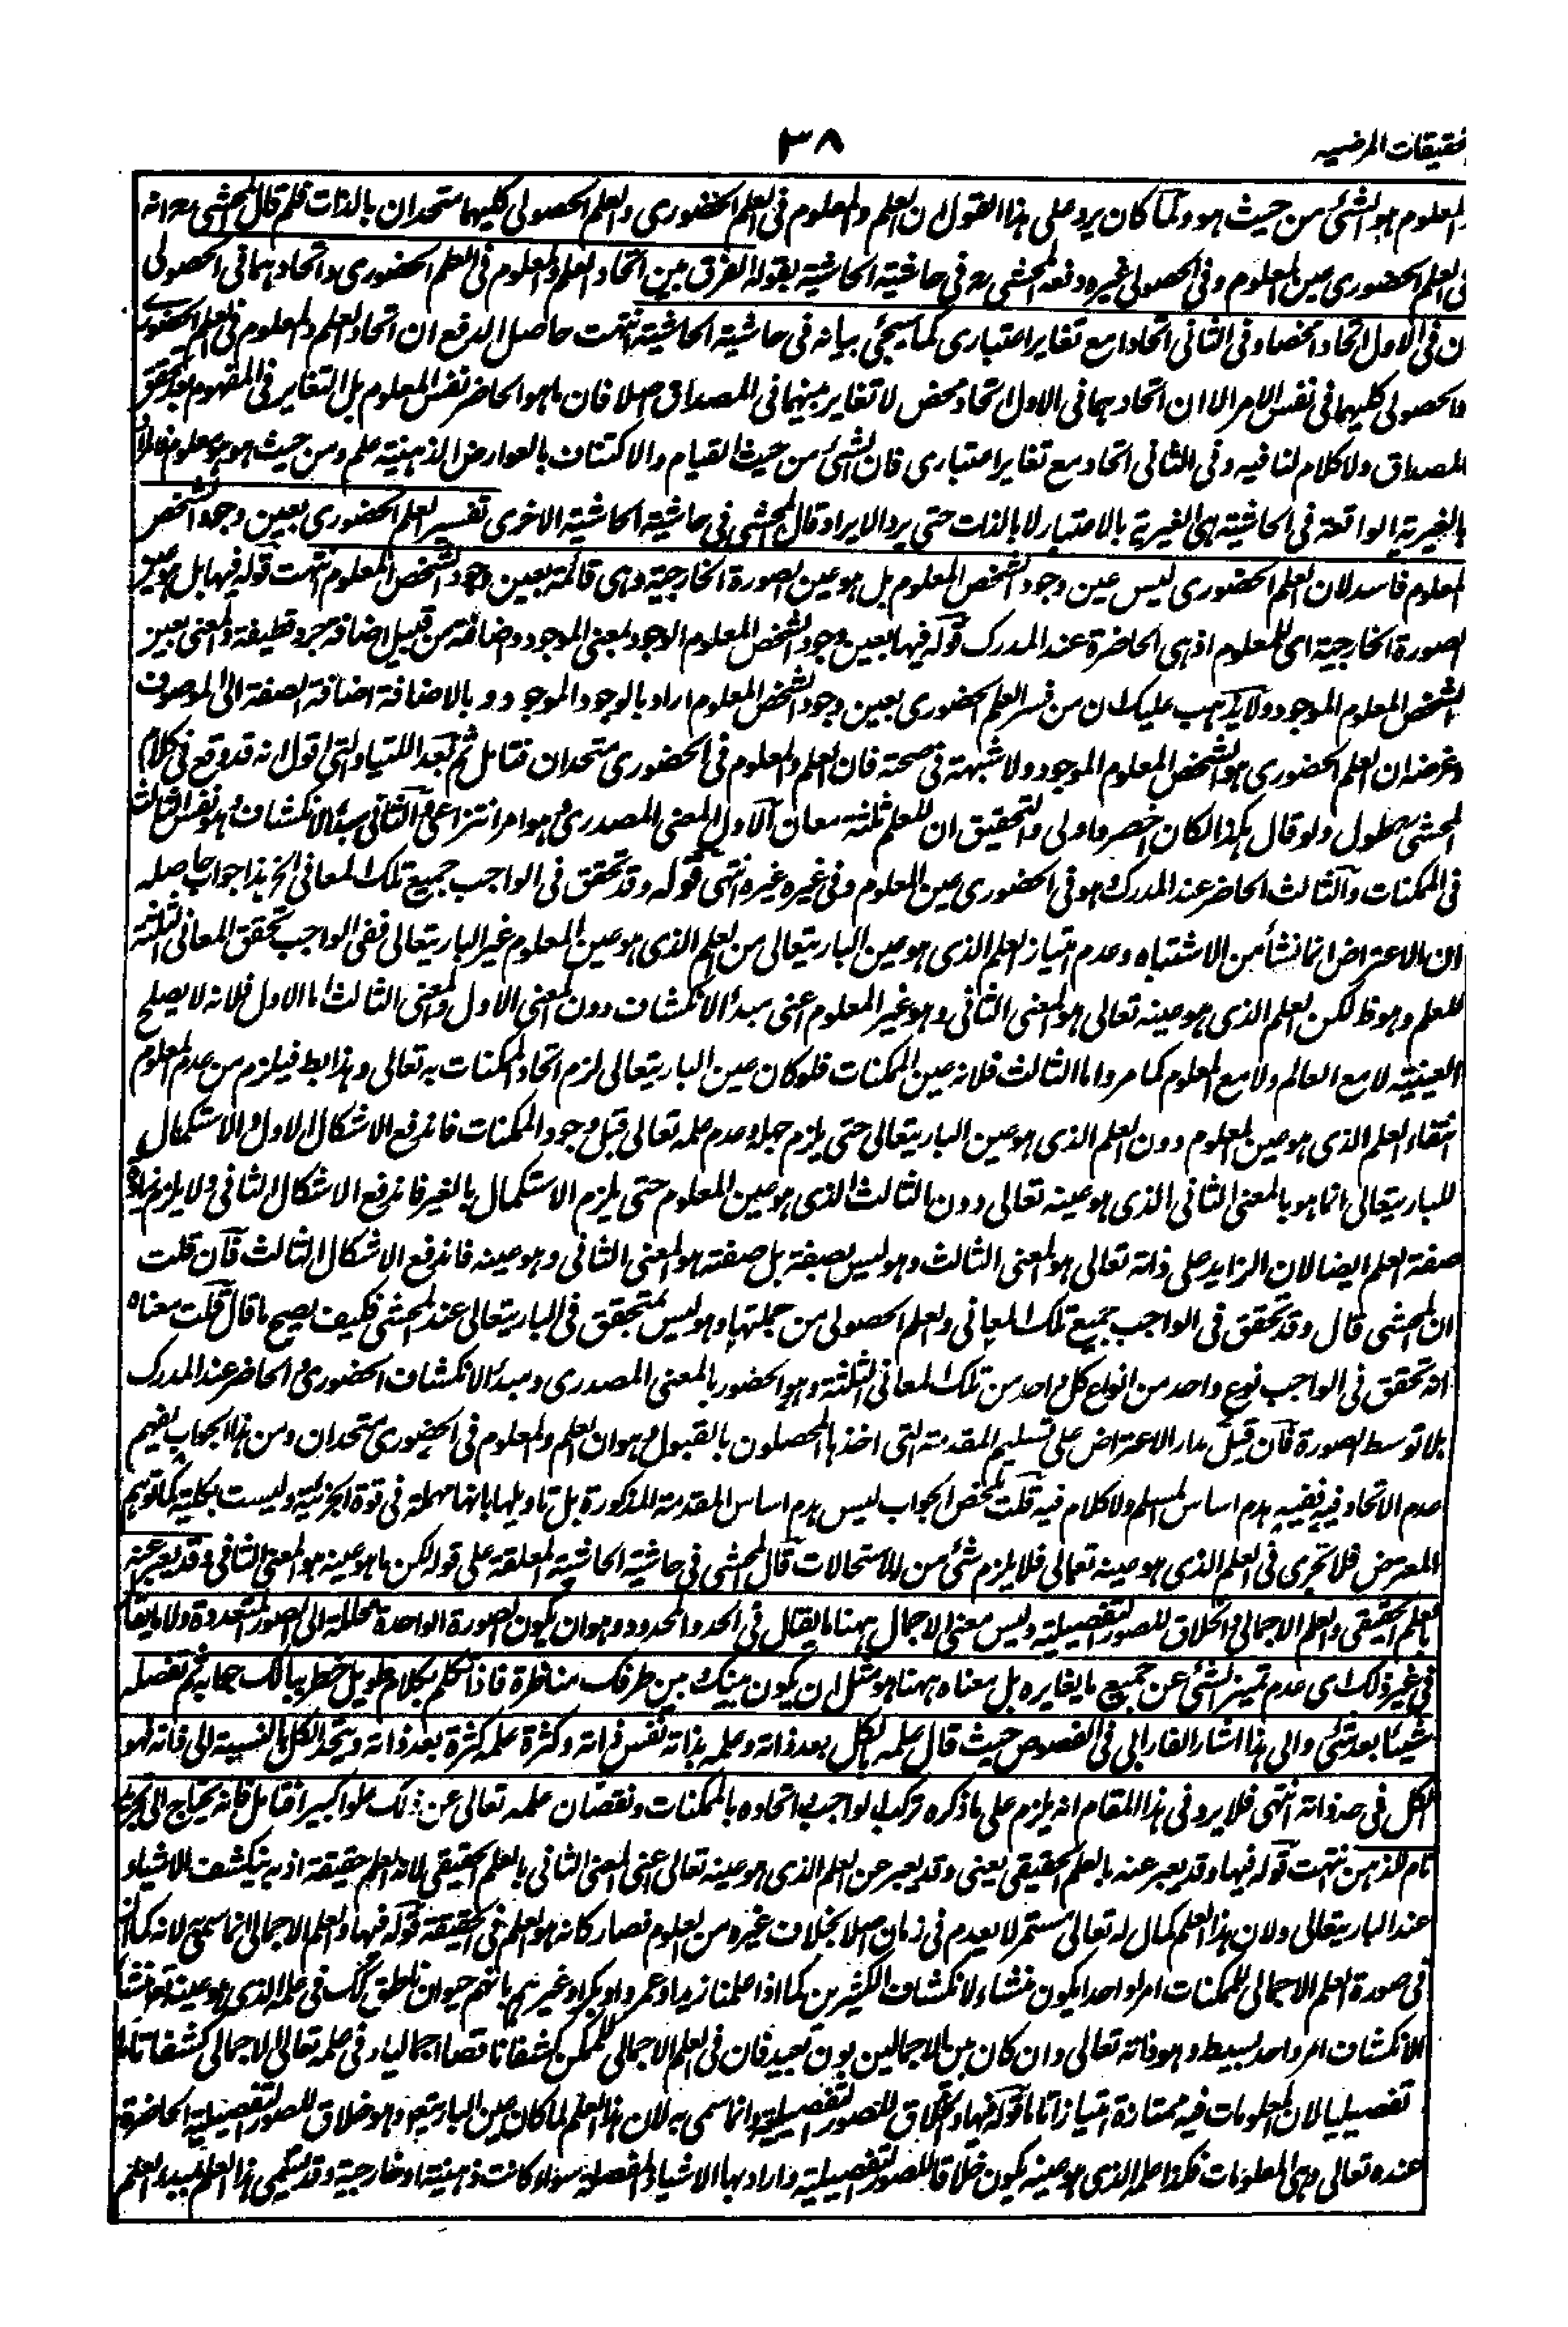 ٣٨
تحقيقات المرضيه
المعلوم هو الشئ من حيث هو ولما كان يرد على هذا القول ان العلم والمعلوم فى العلم الحضورى والعلم الحصولى كليهما متحدان بالذات فلم قال المحشى رح انه
فى العلم الحضورى عين المعلوم وفى الحصولى غيره دفعه المحشى رح فى حاشية الحاشية بقوله الفرق بين اتحاد العلم والمعلوم فى العلم الحضورى واتحادهما فى الحصولى
ان فى الاول اتحادا محضا وفى الثانى اتحادا مع تغاير اعتبارى كما سيجئ بيانه فى حاشية الحاشية انتهت حاصل الدفع ان اتحاد العلم والمعلوم فى العلم الحضورى
والحصولى كليهما فى نفس الامر الا ان اتحادهما فى الاول اتحاد محض لا تغاير بينهما فى المصداق اصلا فان ما هو الحاضر نفس المعلوم بل التغاير فى المفهوم بعد تحقق
المصداق ولا كلام لنا فيه وفى الثانى اتحاد مع تغاير اعتبارى فان الشئ من حيث القيام والاكتناف بالعوارض الذهنية علم ومن حيث هو هو معلوم فالمراد
بالغيرية الواقعة فى الحاشية هى الغيرية بالاعتبار لا بالذات حتى يرد الايراد وقال المحشى فى حاشية الحاشية الاخرى تفسير العلم الحضورى بعين وجود الشخص
المعلوم فاسد لان العلم الحضورى ليس عين وجود الشخص المعلوم بل هو عين الصورة الخارجية وهى قائمة بعين وجود الشخص المعلوم انتهت قوله فيها بل هو عين
الصورة الخارجية اى للمعلوم اذ هى الحاضرة عند المدرك قوله فيها بعين وجود الشخص المعلوم الوجود بمعنى الموجود واضافته من قبيل اضافة جرد قطيفة والمعنى بعين
الشخص المعلوم الموجود ولا يذهب عليك ان من فسر العلم الحضورى بعين وجود الشخص المعلوم اراد بالوجود الموجود وبالاضافة اضافة الصفة الى الموصوف
وغرضه ان العلم الحضورى هو الشخص المعلوم الموجود ولا شبهة فى صحته فان العلم والمعلوم فى الحضورى متحدان فتامل ثم بعد اللتيا والتى اقول انه قد وقع فى كلام
المحشى رح طول ولو قال هكذا لكان اخصر واولى والتحقيق ان للعلم ثلثة معان الاول المعنى المصدرى وهو امر انتزاعى والثانى مبدأ الانكشاف وهو نفس الثالث
فى الممكنات والثالث الحاضر عند المدرك وهو فى الحضورى عين المعلوم وفى غيره غيره انتهى قوله وقد تحقق فى الواجب جميع تلك المعانى الخ هذا جواب حاصله
ان الاعتراض انما نشأ من الاشتباه وعدم امتياز العلم الذى هو عين البارى تعالى من العلم الذى هو عين المعلوم غير البارى تعالى ففى الواجب تحقق المعانى الثلثة
للعلم وهو ظ لكن العلم الذى هو عينه تعالى هو المعنى الثانى وهو غير المعلوم اعنى مبدأ الانكشاف دون المعنى الاول والمعنى الثالث اما الاول فلانه لا يصلح
العينية لا مع العالم ولا مع المعلوم كما مر واما الثالث فلانه عين الممكنات فلو كان عين البارى تعالى لزم اتحاد الممكنات به تعالى وهذا بط فيلزم من عدم المعلوم
انتفاء العلم الذى هو عين المعلوم دون العلم الذى هو عين البارى تعالى حتى يلزم جهله وعدم علمه تعالى قبل وجود الممكنات فاندفع الاشكال الاول والاستكمال
للبارى تعالى انما هو بالمعنى الثانى الذى هو عينه تعالى دون الثالث الذى هو عين المعلوم حتى يلزم الاستكمال بالغير فاندفع الاشكال الثانى ولا يلزم زيادة
صفة العلم ايضا لان الزايد على ذاته تعالى هو المعنى الثالث وهو ليس بصفة بل صفته هو المعنى الثانى وهو عينه فاندفع الاشكال الثالث فان قلت
ان المحشى قال وقد تحقق فى الواجب جميع تلك المعانى والعلم الحصولى من جملتها وهو ليس بمتحقق فى البارى تعالى عند المحشى فكيف يصح ما قال قلت معناه
انه تحقق فى الواجب نوع واحد من انواع كل واحد من تلك المعانى الثلثة وهو الحضور بالمعنى المصدرى ومبدأ الانكشاف الحضورى والحاضر عند المدرك
بلا توسط الصورة فان قيل مدار الاعتراض على تسليم المقدمة التى اخذها المحصلون بالقبول وهو ان العلم والمعلوم فى الحضورى متحدان ومن هذا الجواب يفهم
عدم الاتحاد فيه ففيه هدم اساس المسلم ولا كلام فيه قلت ملخص الجواب ليس هدم اساس المقدمة المذكورة بل تاويلها بانها مهملة فى قوة الجزئية وليست بكلية كما توهم
المعترض فلا تجرى فى العلم الذى هو عينه تعالى فلا يلزم شئ من الاستحالات قال المحشى فى حاشية الحاشية المعلقة على قوله لكن ما هو عينه هو المعنى الثانى وقد يعبر عنه
بالعلم الحقيقى والعلم الاجمالى والخلاق للصور التفصيلية وليس معنى الاجمال ههنا ما يقال فى الحد والمحدود وهو ان يكون الصورة الواحدة محللة الى الصور المتعددة ولا ما يقال
فى غير ذلك اى عدم تميز الشئ عن جميع ما يغايره بل معناه ههنا هو مثل ان يكون بينك وبين طرفك مناظرة فاذا تكلم بكلام طويل خطر ببالك جوابه ثم تفصله
شيئا بعد شئ والى هذا اشار الفارابى فى الفصوص حيث قال علمه بالكل بعد ذاته وعلمه بذاته نفس ذاته وكثرة علمه كثرة بعد ذاته ويتحد الكل بالنسبة الى ذاته فهو
الكل فى حد ذاته انتهى فلا يرد فى هذا المقام انه يلزم على ما ذكره تركب الواجب او اتحاده بالممكنات ونقصان علمه تعالى عن ذلك علوا كبيرا فتامل فانه يحتاج الى تجريد
تام للذهن انتهت قوله فيها وقد يعبر عنه بالعلم الحقيقى يعنى وقد يعبر عن العلم الذى هو عينه تعالى اعنى المعنى الثانى بالعلم الحقيقى لانه العلم حقيقة اذ به ينكشف الاشياء
عند البارى تعالى ولان هذا العلم كمال له تعالى مستمر لا يعدم فى زمان اصلا بخلاف غيره من العلوم فصار كانه هو العلم فى الحقيقة قوله فيها والعلم الاجمالى انما سمى به لانه كما ان
فى صورة العلم الاجمالى للممكنات امرا واحدا يكون منشاء لانكشاف الكثيرين كما اذا علمنا زيدا وعمروا وبكرا وغيرهم بانهم حيوان ناطق كك فى علمه الذى هو عينه منشأ
الانكشاف امر واحد بسيط وهو ذاته تعالى وان كان بين الاجمالين بون بعيد فان فى العلم الاجمالى للممكن كشفا ناقصا اجماليا وفى علمه تعالى الاجمالى كشفا تاما
تفصيليا لان المعلومات فيه ممتازة امتيازا تاما قوله فيها والخلاق للصور التفصيلية وانما سمى به لان هذا العلم لما كان عين البارى تع وهو خلاق للصور التفصيلية الحاضرة
عنده تعالى وهى المعلومات فكذا علمه الذى هو عينه يكون خلاقا للصور التفصيلية واراد بها الاشياء المفصلة سواء كانت ذهنية او خارجية وقد يسمى هذا العلم بمبدء العلم